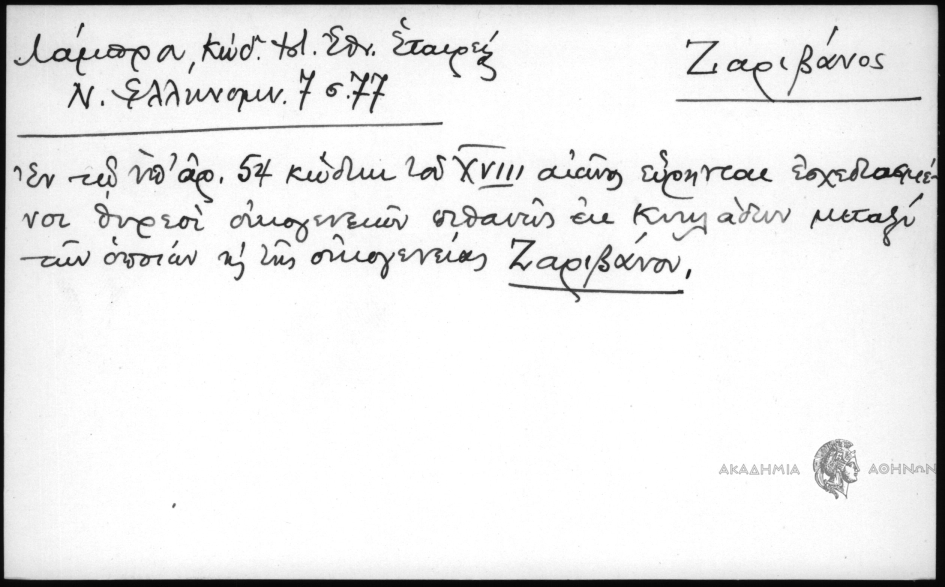 Λάμπρου, Κώδ. Ἱστ. Ἐθν. Ἑταιρείας
Ζαριβάνος
Ν. Ἑλληνομν. 7 σ. 77
Ἐν τῷ ὑπ' ἀρ. 54 κώδικι τοῦ XVIII αἰῶνος εὕρηνται ἐσχεδιασμέ-
νοι θυρεοὶ οἰκογενειῶν πιθανῶς ἐκ Κυκλάδων μεταξὺ
τῶν ὁποίων κ̀ τῆς οἰκογενείας Ζαριβάνου.
ΑΚΑΔΗΜΙΑ ΑΘΗΝΩΝ